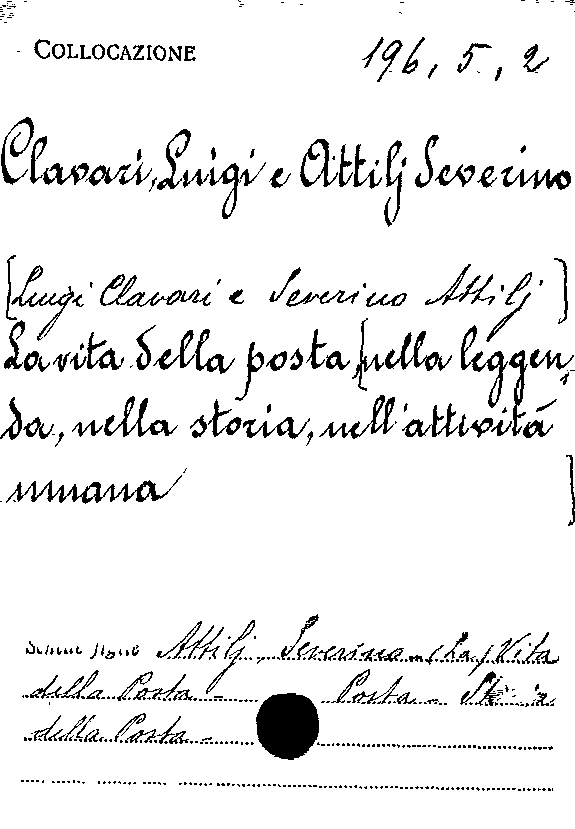 COLLOCAZIONE 196, 5, 2
Clavari, Luigi e Attilj Severino
[Luigi Clavari e Severino Attilj]
La vita della posta [nella leggen,
da, nella storia, nell'attività
umana ]
Attilj, Severino - (La) Vita
della Posta - Posta -
della Posta -